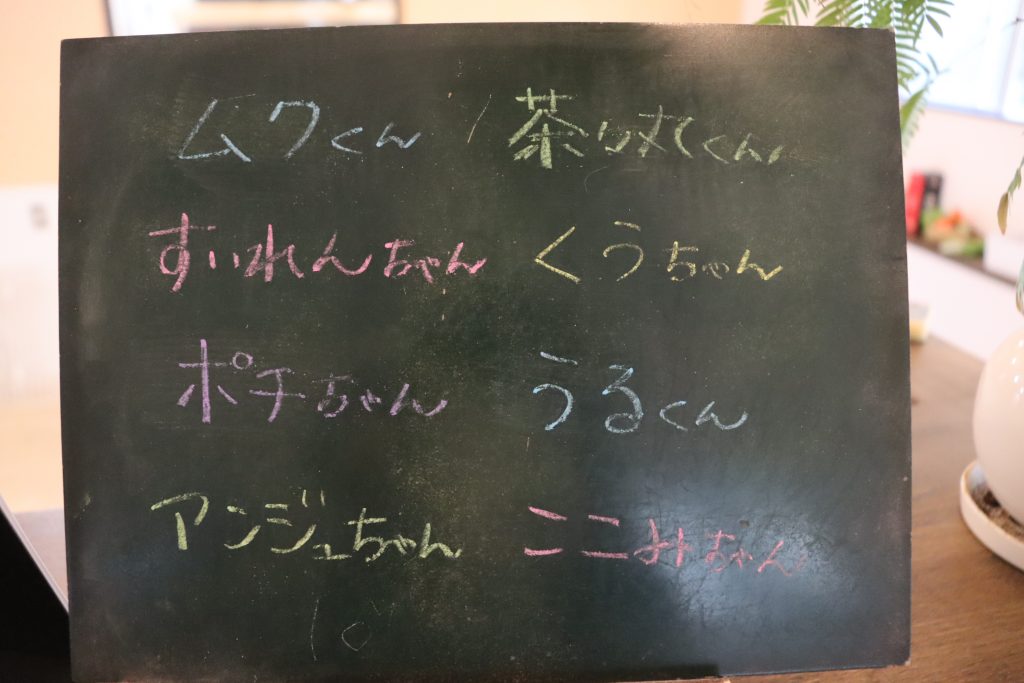 ムクくん 茶々丸くん
すいれんちゃん くうちゃん
ポチちゃん うるくん
アンジュちゃん ここみちゃん